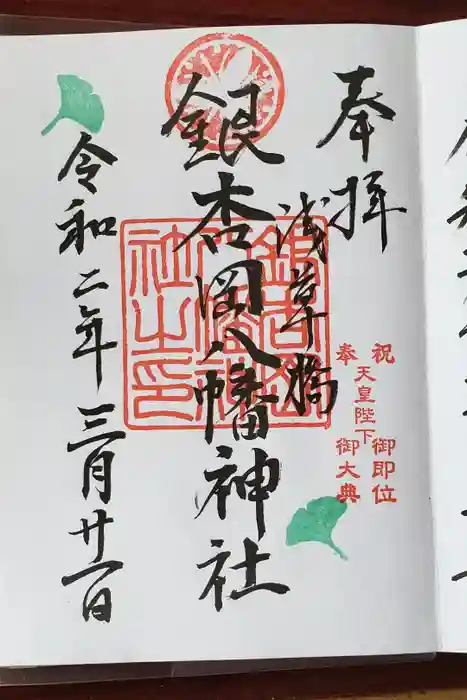 奉拝
浅草橋
銀杏岡八幡神社
令和二年三月廿一日
奉祝
天皇陛下
御即位
御大典
銀杏岡
八幡神
社之印